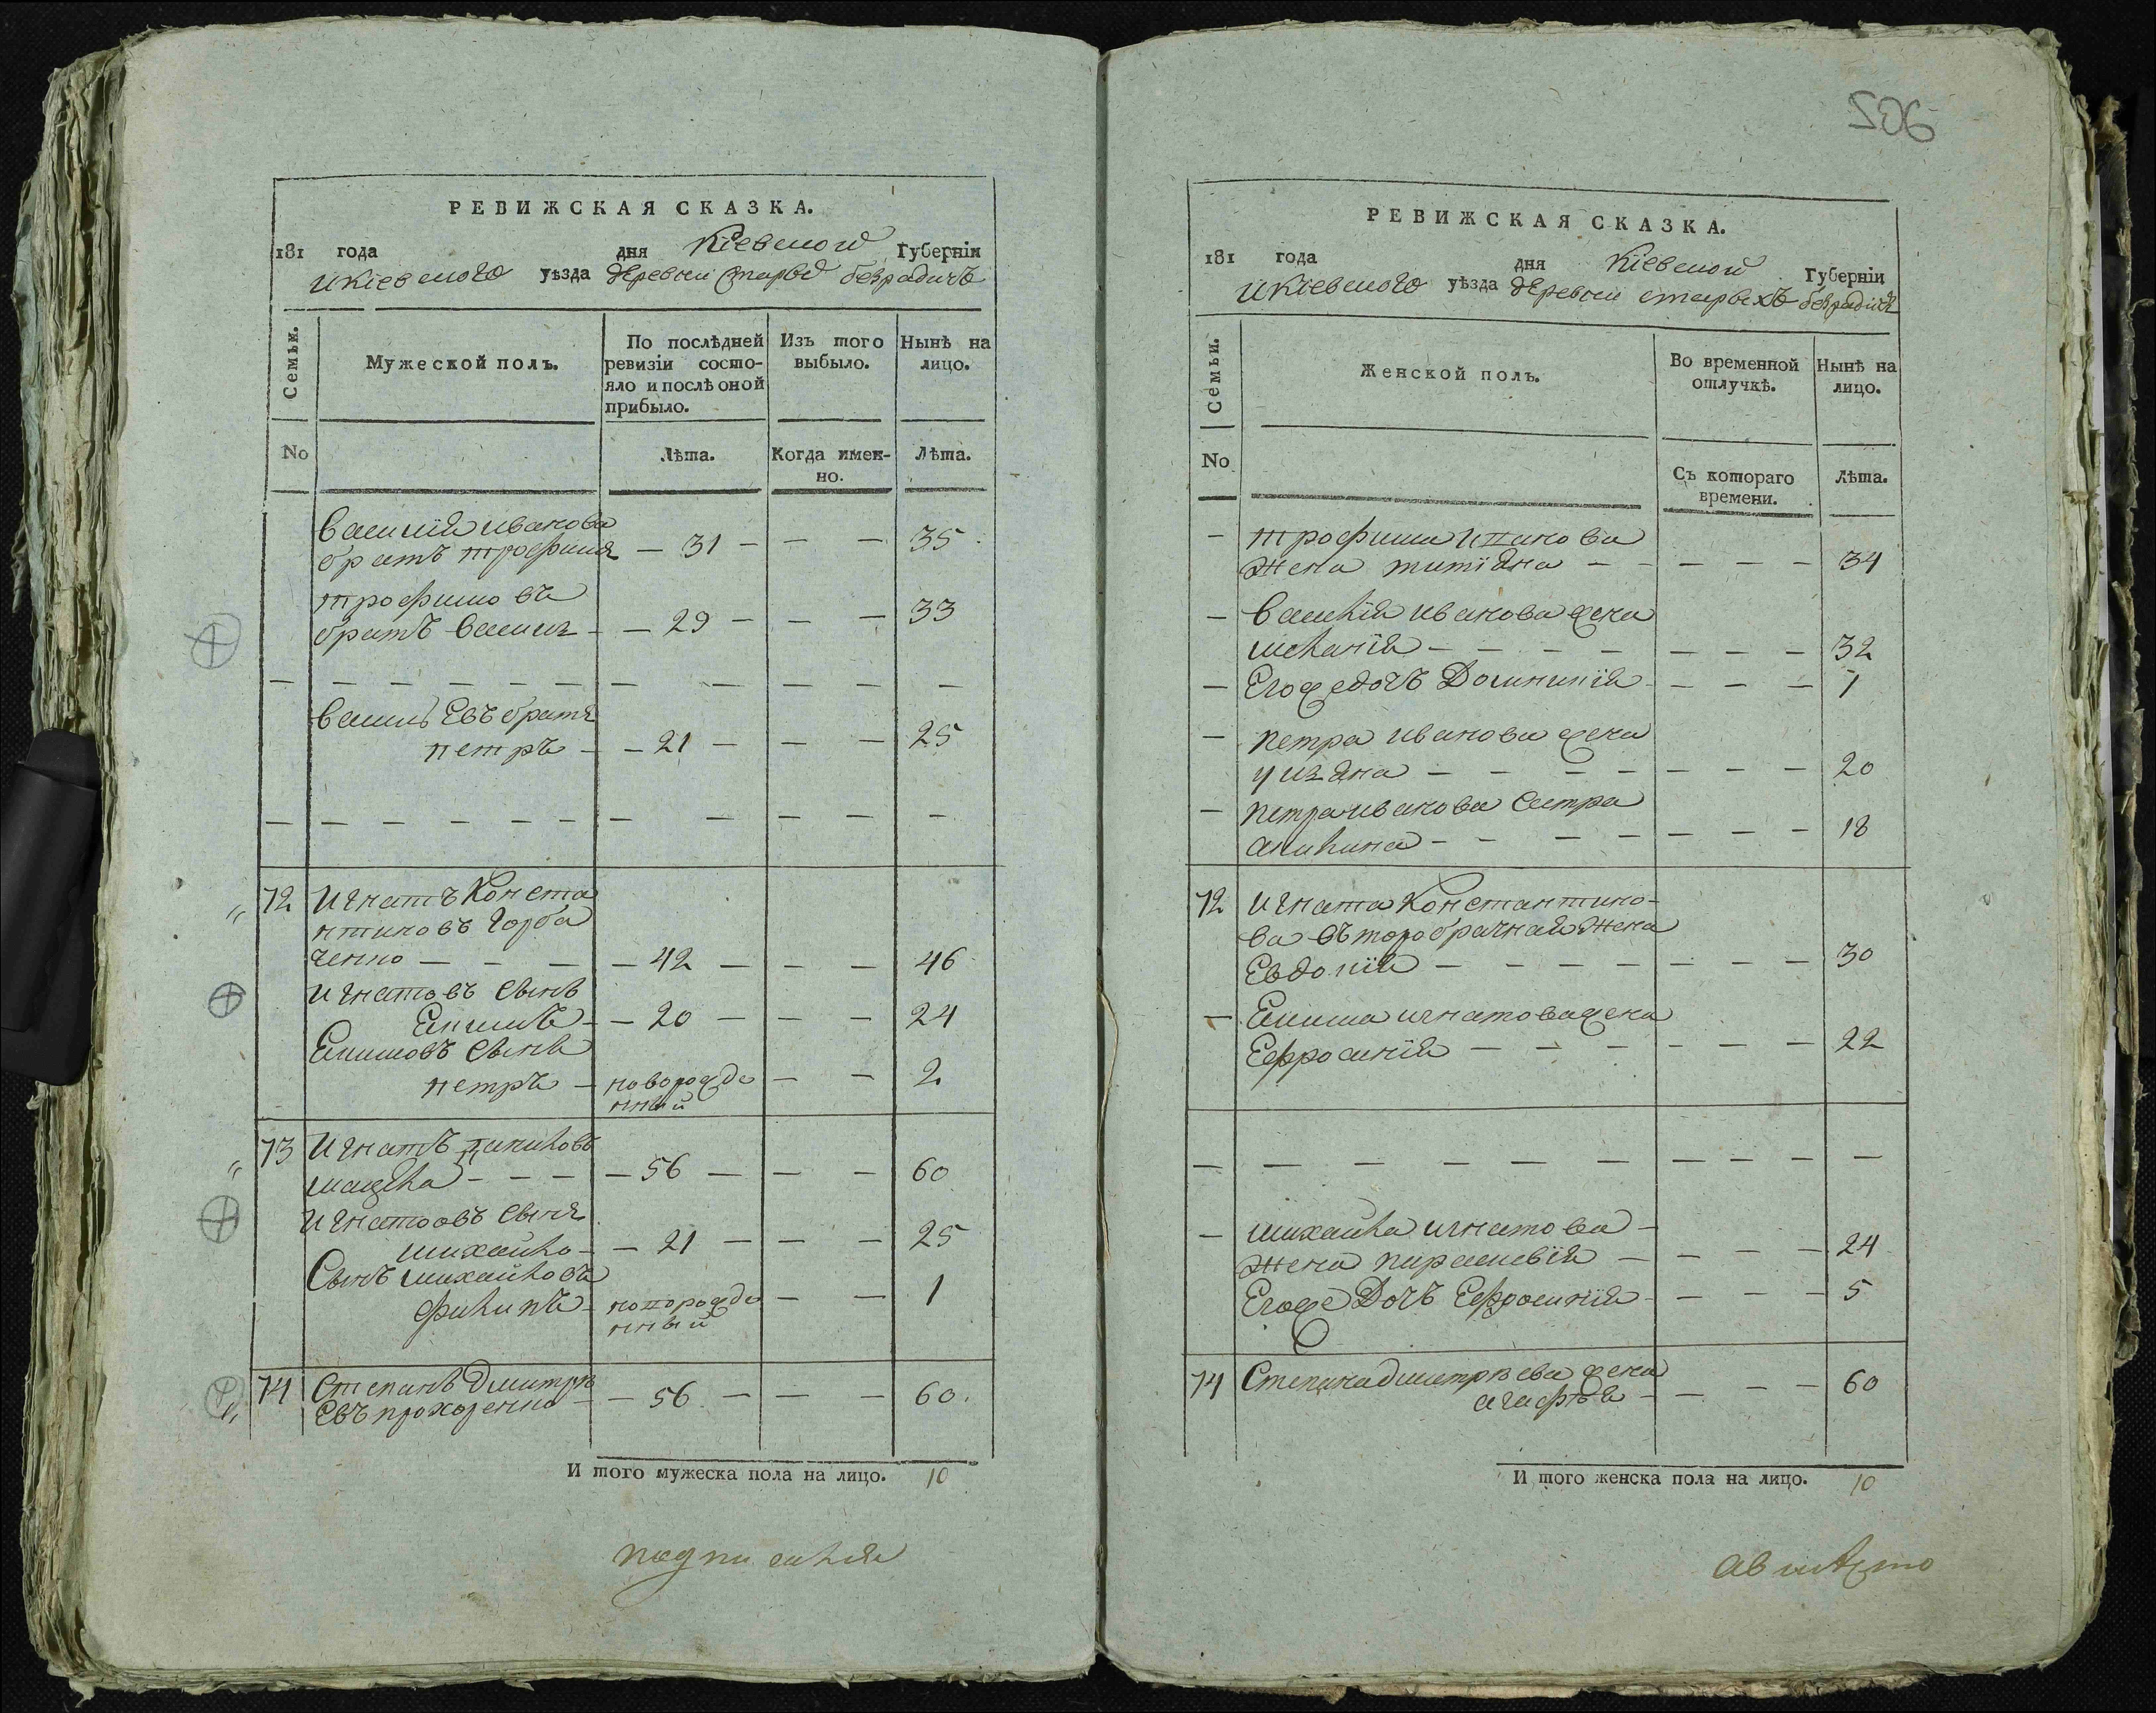 РЕВИЖСКАЯ СКАЗКА.
181 года дня Кіевской Губерніи
и Кіевского уѣзда деревни старыхъ безрадичъ
Семьи.
Мужеской полъ.
По послѣдней ревизіи состо-
яло и послѣ оной
прибыло.
Изъ того
выбыло.
Нынѣ на
лицо.
No
Лѣта.
Когда имен-
но.
Лѣта.
Василія иванова
братъ трофимъ — 31 — — — 35
трофимовъ
братъ василь — — 29 — — — 33
васильевъ братъ
петръ — — 21 — — — 25
72 Игнатъ Конста
нтиновъ Горба
ченко — — — — 42 — — — 46
игнатовъ сынъ
Екимъ — — 20 — — — 24
Екимовъ сынъ
петръ — новорожде
нный — — 2
73 Игнатъ
— — — — 56 — — — 60
Игнатовъ сынъ
михайло — — 21 — — — 25
Сынъ михайловъ
филипъ — новорожде
нный — — 1
74 Степанъ Дмитрі
евъ прохоренко — — 56 — — — 60.
И того мужеска пола на лицо. 10
подписался
506
РЕВИЖСКАЯ СКАЗКА.
181 года дня Кіевской Губерніи
и Кіевского уѣзда деревни старыхъ безрадичъ
Семьи.
Женской полъ.
Во временной
отлучкѣ.
Нынѣ на
лицо.
No
Съ котораго
времени.
Лѣта.
— трофима иванова
жена титіяна — — — — — 34
— василія иванова жена
меланія — — — — — — — — 32
— Егожъ дочь Домникія — — — 1
— петра иванова жена
ульяна — — — — — — — — 20
— петра иванова сестра
акилина — — — — — — — — 18
72 Игната Константино-
ва второбрачная жена
Евдокія — — — — — — — — 30
— Екима игнатова жена
Ефросинія — — — — — — — 22
— михайла игнатова —
жена параскевія — — — — 24
Егоже Дочъ Ефросинія — — — — 5
74 Степана дмитріева жена
агафія — — — — 60
И того женска пола на лицо. 10